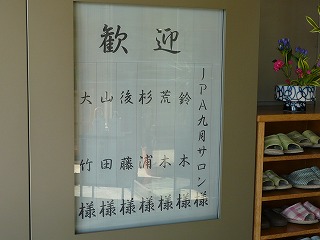 歓迎
JPA九月サロン様
鈴木様
荒木様
杉浦様
後藤様
山田様
大竹様